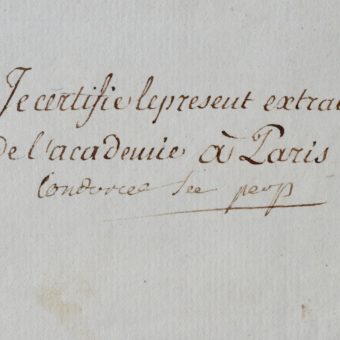 Je certifie le present extra
de l'academie à Paris
Condorcet Sec perp